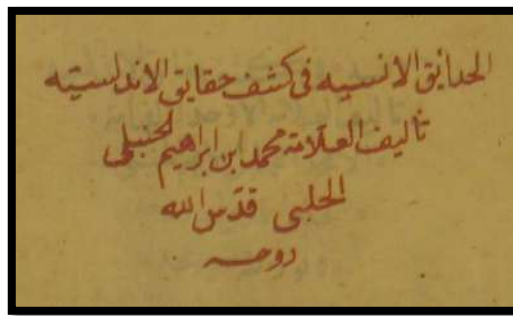 الحدايق الانسيه فى كشف حقايق الاندلسيه
تاليف العلامة محمد ابن ابراهيم الحنبلى
الحلبى قدس الله
روحه